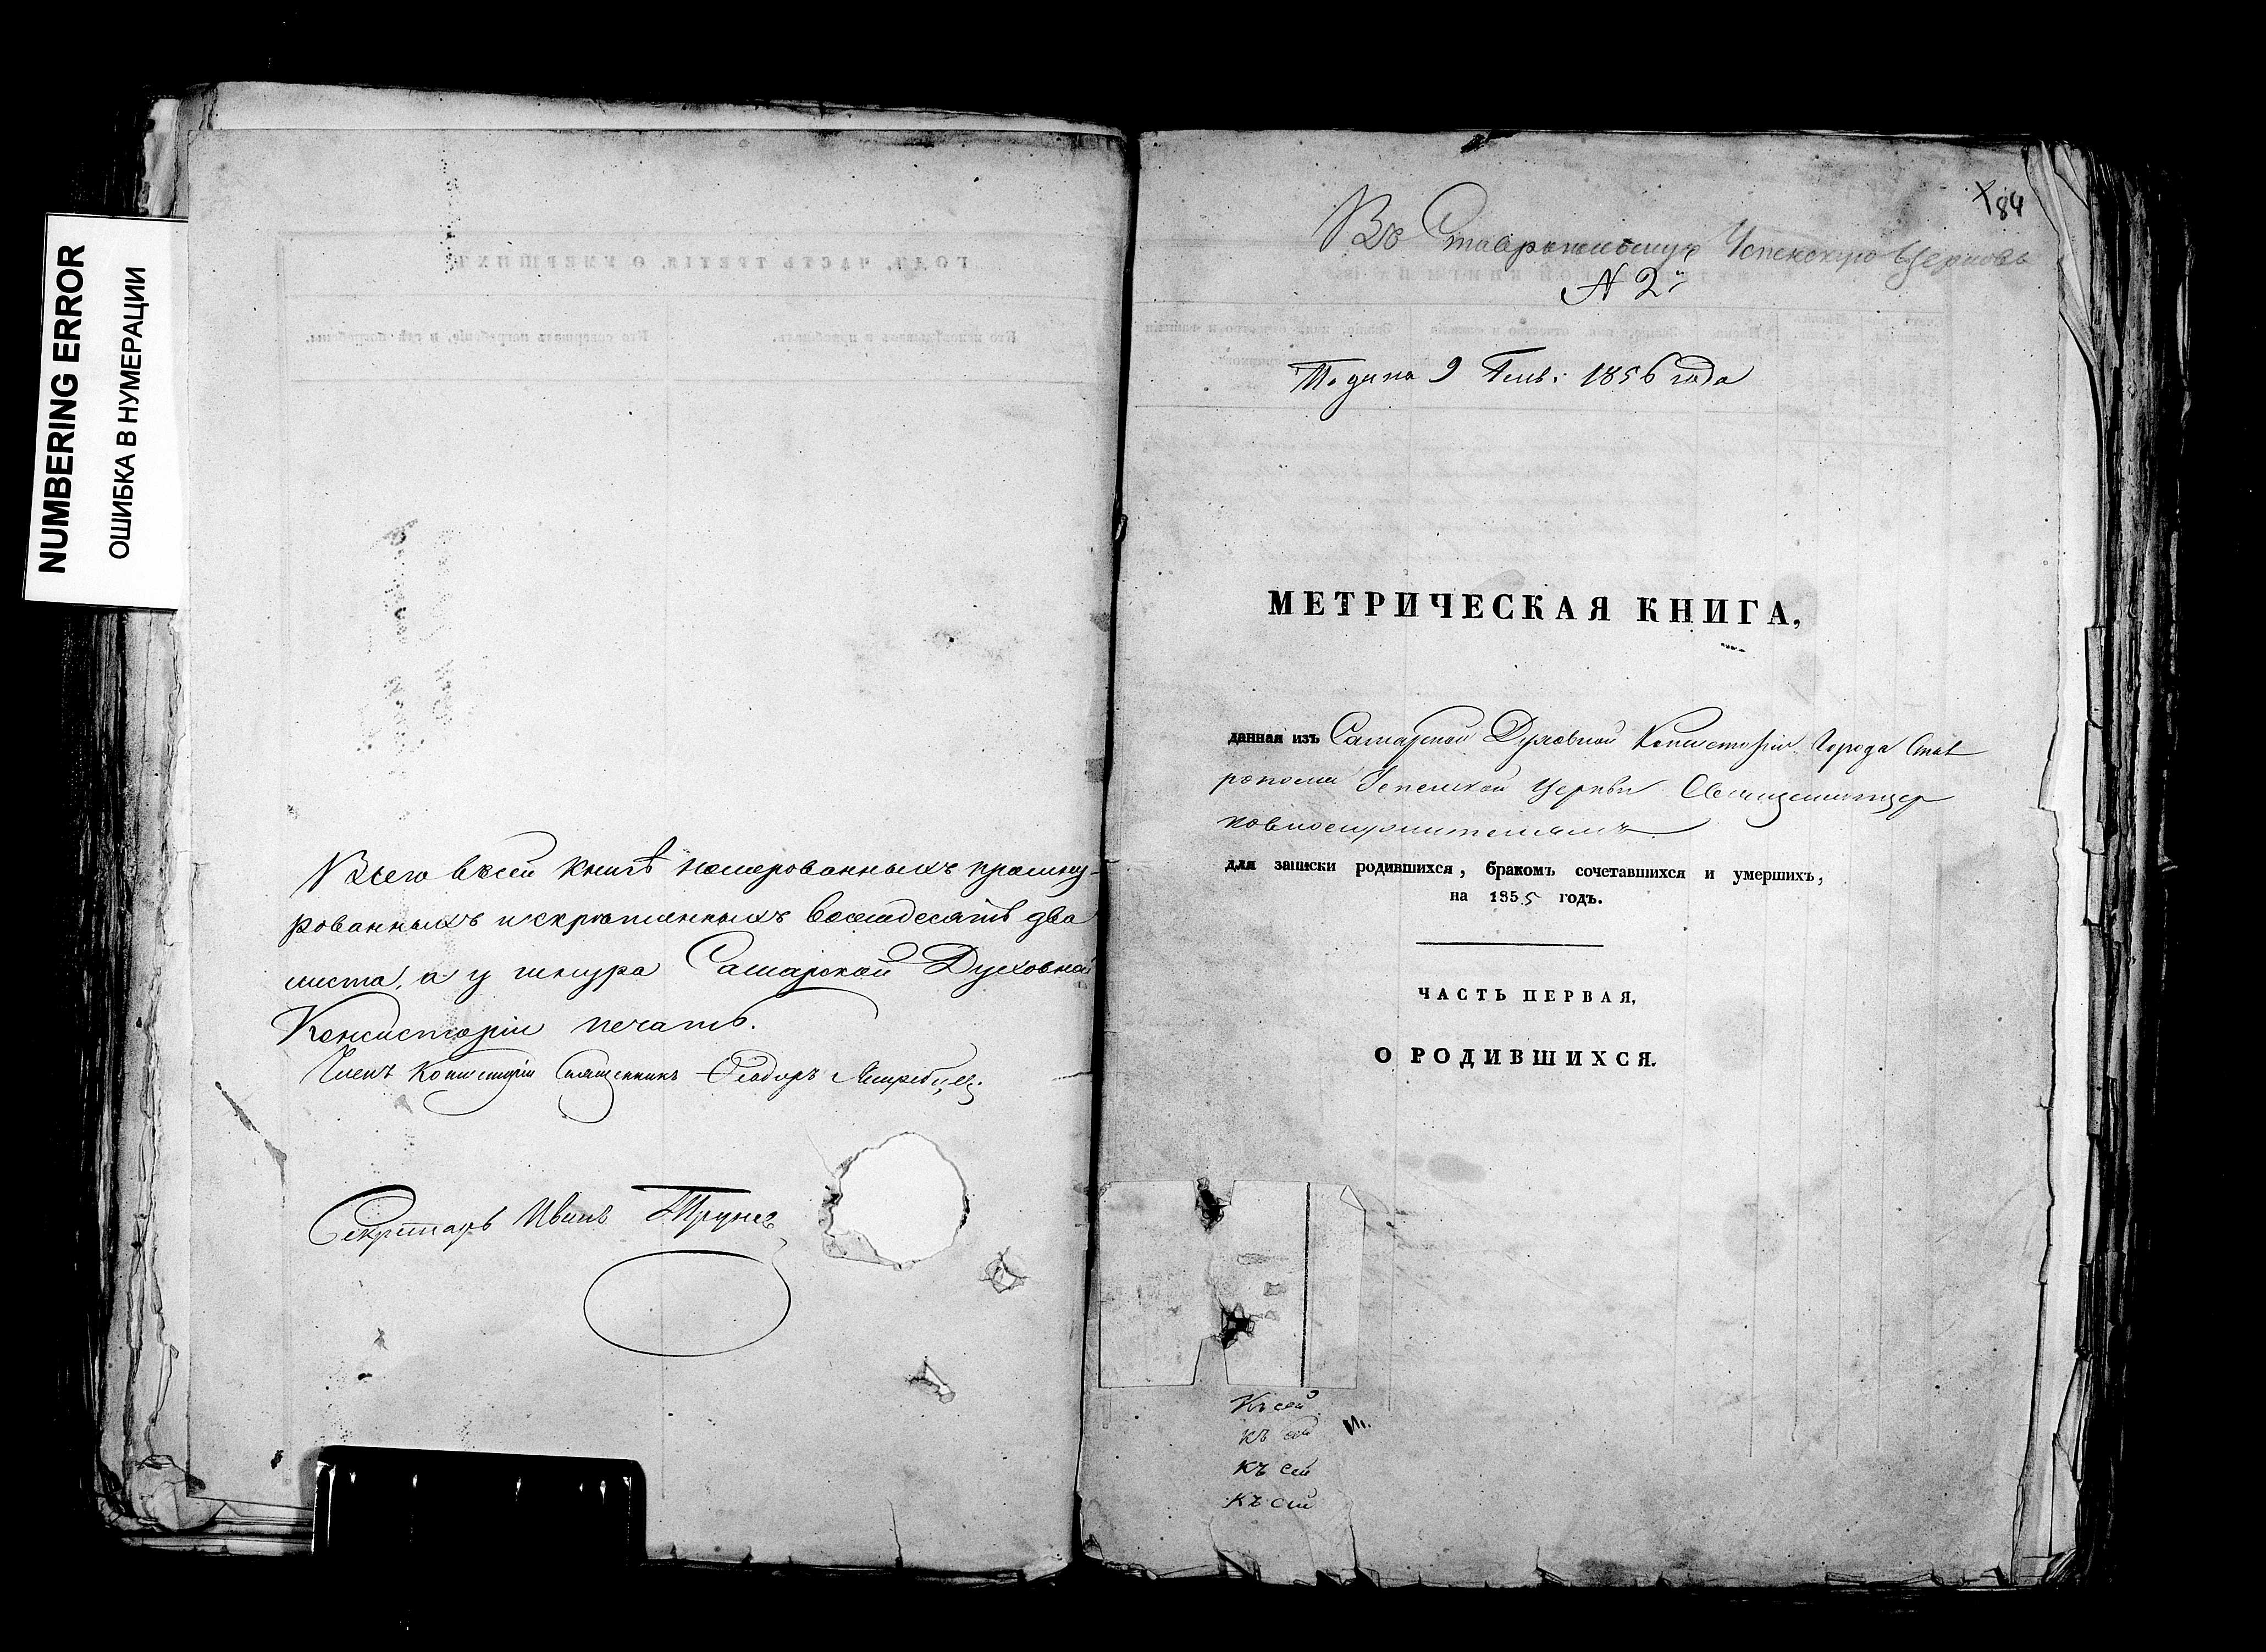 NUMBERING ERROR
ОШИБКА В НУМЕРАЦИИ
Всего въ сей книгѣ номерованныхъ прошну-
рованныхъ и скрѣпленныхъ восемдесятъ два
листа, а у шнура Самарской Духовной
Консисторіи печать.
Членъ Консисторіи Священникъ Ѳеодоръ
Секретарь Иванъ
84
Въ Ставропольскую Успенскую Церковь
N 2й
Подана 9 Генв: 1856 года
МЕТРИЧЕСКАЯ КНИГА,
данная изъ Самарской Духовной Консисторіи Города Став
рополя Успенской Церкви Священноцер
ковнослужителямъ
для записки родившихся, бракомъ сочетавшихся и умершихъ,
на 1855 годъ.
ЧАСТЬ ПЕРВАЯ,
О РОДИВШИХСЯ.
Къ сей
къ сей
къ сей
къ сей